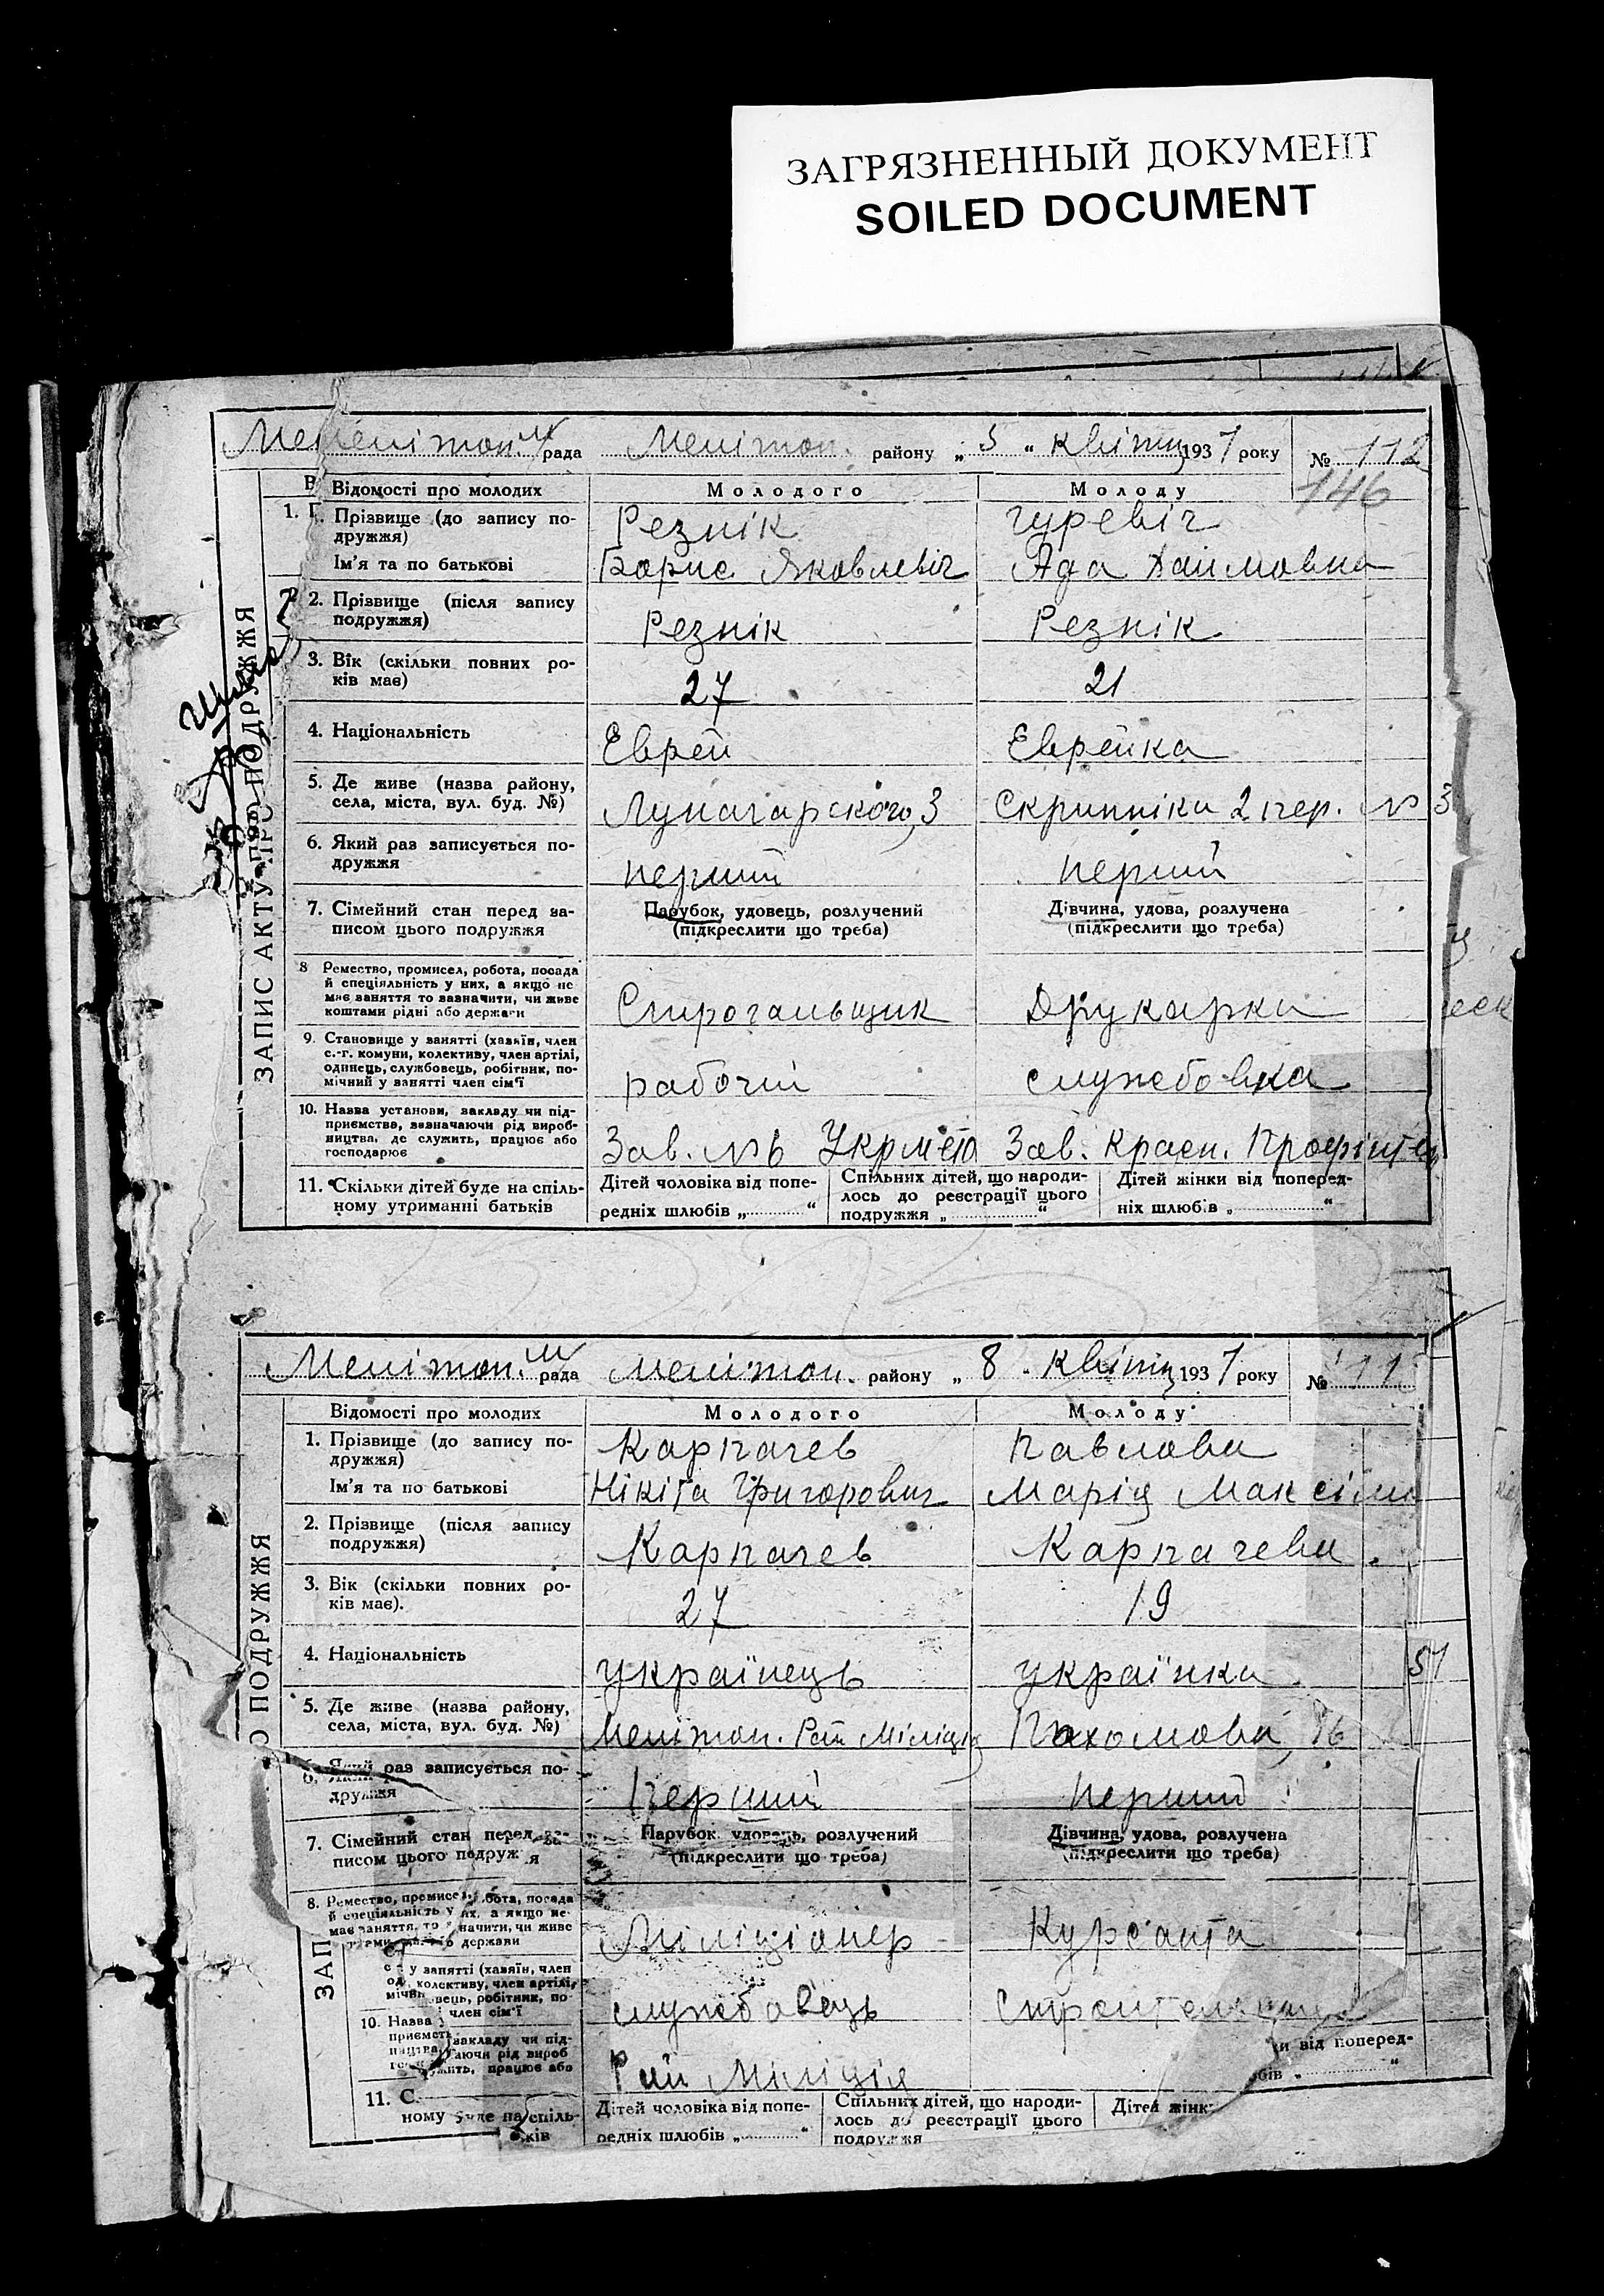 ЗАГРЯЗНЕННЫЙ ДОКУМЕНТ
SOILED DOCUMENT
Мелітоп. м рада Мелітоп. району „ 5 “ квітня 1937 року № 112
146
ЗАПИС АКТУ ПРО ПОДРУЖЖЯ
Відомості про молодих Молодого Молоду
1. Прізвище (до запису по-
дружжя) Резнік Гуревіч
Ім’я та по батькові Борис Яковлевіч Ада Хаімовна
2. Прізвище (після запису
подружжя) Резнік Резнік
3. Вік (скільки повних ро-
ків має) 27 21
4. Національність Еврей Еврейка
5. Де живе (назва району,
села, міста, вул. буд. №) Луначарского, 3 Скрипніка 2 пер. № 3
6. Який раз записується по-
дружжя перший перший
7. Сімейний стан перед за-
писом цього подружжя
Парубок, удовець, розлучений
(підкреслити що треба)
Дівчина, удова, розлучена
(підкреслити що треба)
8 Ремество, промисел, робота, посада
й спеціяльність у них, а якщо не
має заняття то зазначити, чи живе
коштами рідні або держави
Строгальщик Друкарка
9. Становище у занятті (хазяїн, член
с.-г. комуни, колективу, член артілі,
одинець, службовець, робітник, по-
мічний у занятті член сім’ї
рабочій службовка
10. Назва установи, закладу чи під-
приємства, зазначаючи рід вироб-
ництва, де служить, працює або
господарює
Зав. №6 Укрмета Зав. Красн. Профінтер
11. Скільки дітей буде на спіль-
ному утриманні батьків
Дітей чоловіка від попе-
редніх шлюбів „ “
Спільних дітей, що народи-
лось до реєстрації цього
подружжя „ “
Дітей жінки від поперед-
ніх шлюбів „ “
Мелітоп. м рада Мелітоп. району „ 8 квітня 1937 року № 11
О ПОДРУЖЖЯ
ЗАП
Відомості про молодих Молодого Молоду
1. Прізвище (до запису по-
дружжя) Карпачев Павлова
Ім’я та по батькові Нікіта Григорович Марія Максім
2. Прізвище (після запису
подружжя) Карпачев Карпачева
3. Вік (скільки повних ро-
ків має). 27 19
4. Національність українець українка
57
5. Де живе (назва району,
села, міста, вул. буд. №) Мелітоп. Рай Міліція Пахомова, 16
6. Який раз записується по-
дружжя перший перший
7. Сімейний стан перед за-
писом цього подружжя
Парубок, удовець, розлучений
(підкреслити що треба)
Дівчина, удова, розлучена
(підкреслити що треба)
8. Ремество, промисел, робота, посада
й спеціяльність у них, а якщо не
має заняття, то значити, чи живе
держави
Міліціонер Курсанта
у занятті (хазяїн, член
колективу, член артілі,
вець, робітник, по-
член сім’ї
службовець
10. Назва
приємств закладу чи під-
ництва, аючи рід вироб
жить, працює або
Рай Міліція
ки від поперед-
бів „ “
11. С
ному буде на спіль-
ків
Дітей чоловіка від попе-
редніх шлюбів „ “
Спільних дітей, що народи-
лось до реєстрації цього
подружжя
Дітей жінк